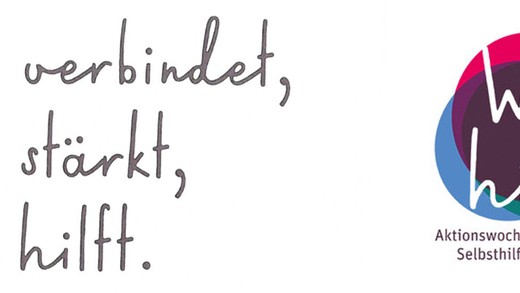 verbindet,
stärkt,
hilft.
Aktionswoch
Selbsthilf